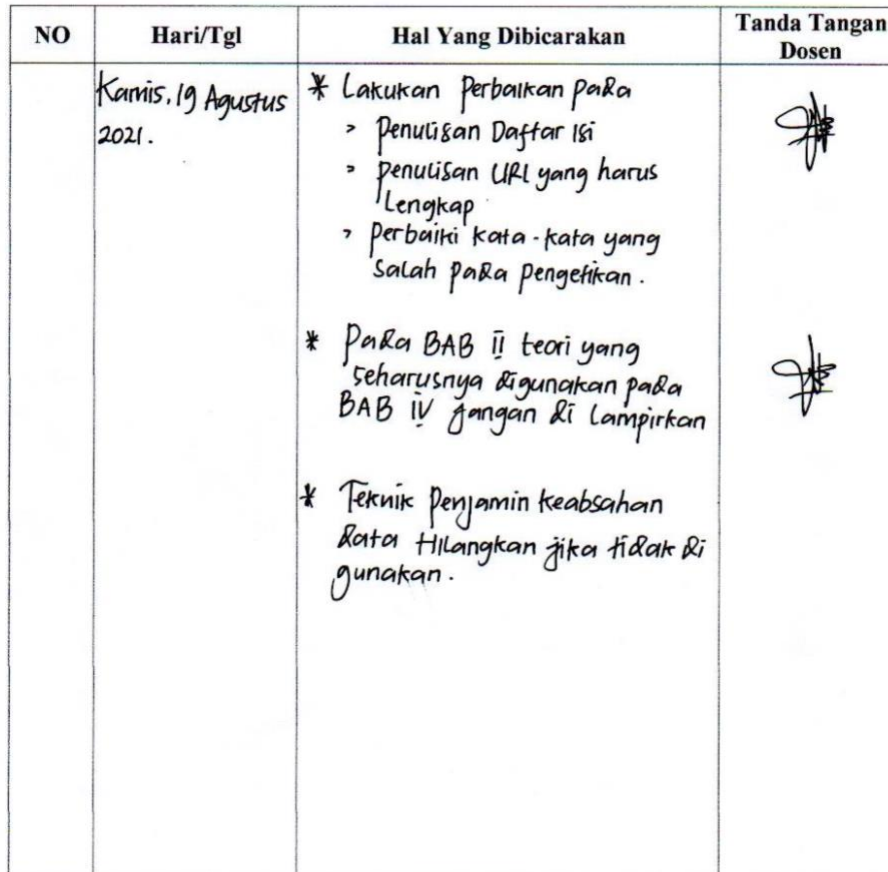 NO Hari/Tgl Hal Yang Dibicarakan Tanda Tangan
Dosen
Kamis, 19 Agustus
2021.
* Lakukan Perbaikan pada
> Penulisan Daftar Isi
> penulisan URL yang harus
Lengkap
> Perbaiki kata-kata yang
salah pada pengetikan.
* Pada BAB II teori yang
seharusnya digunakan pada
BAB IV jangan di lampirkan
* Teknik Penjamin keabsahan
data Hilangkan jika tidak di
gunakan.